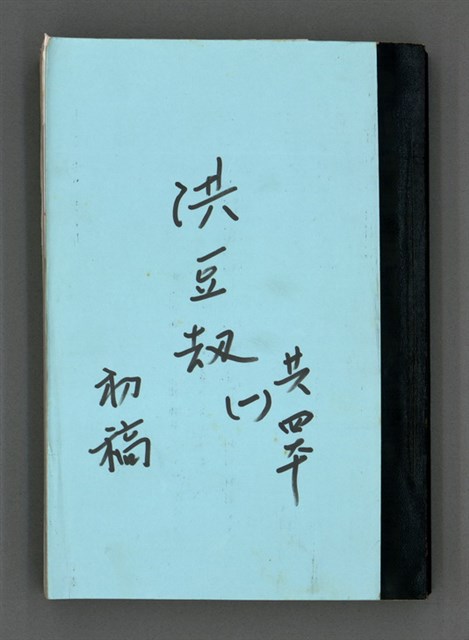 洪豆刼
(一)
共四本
初稿